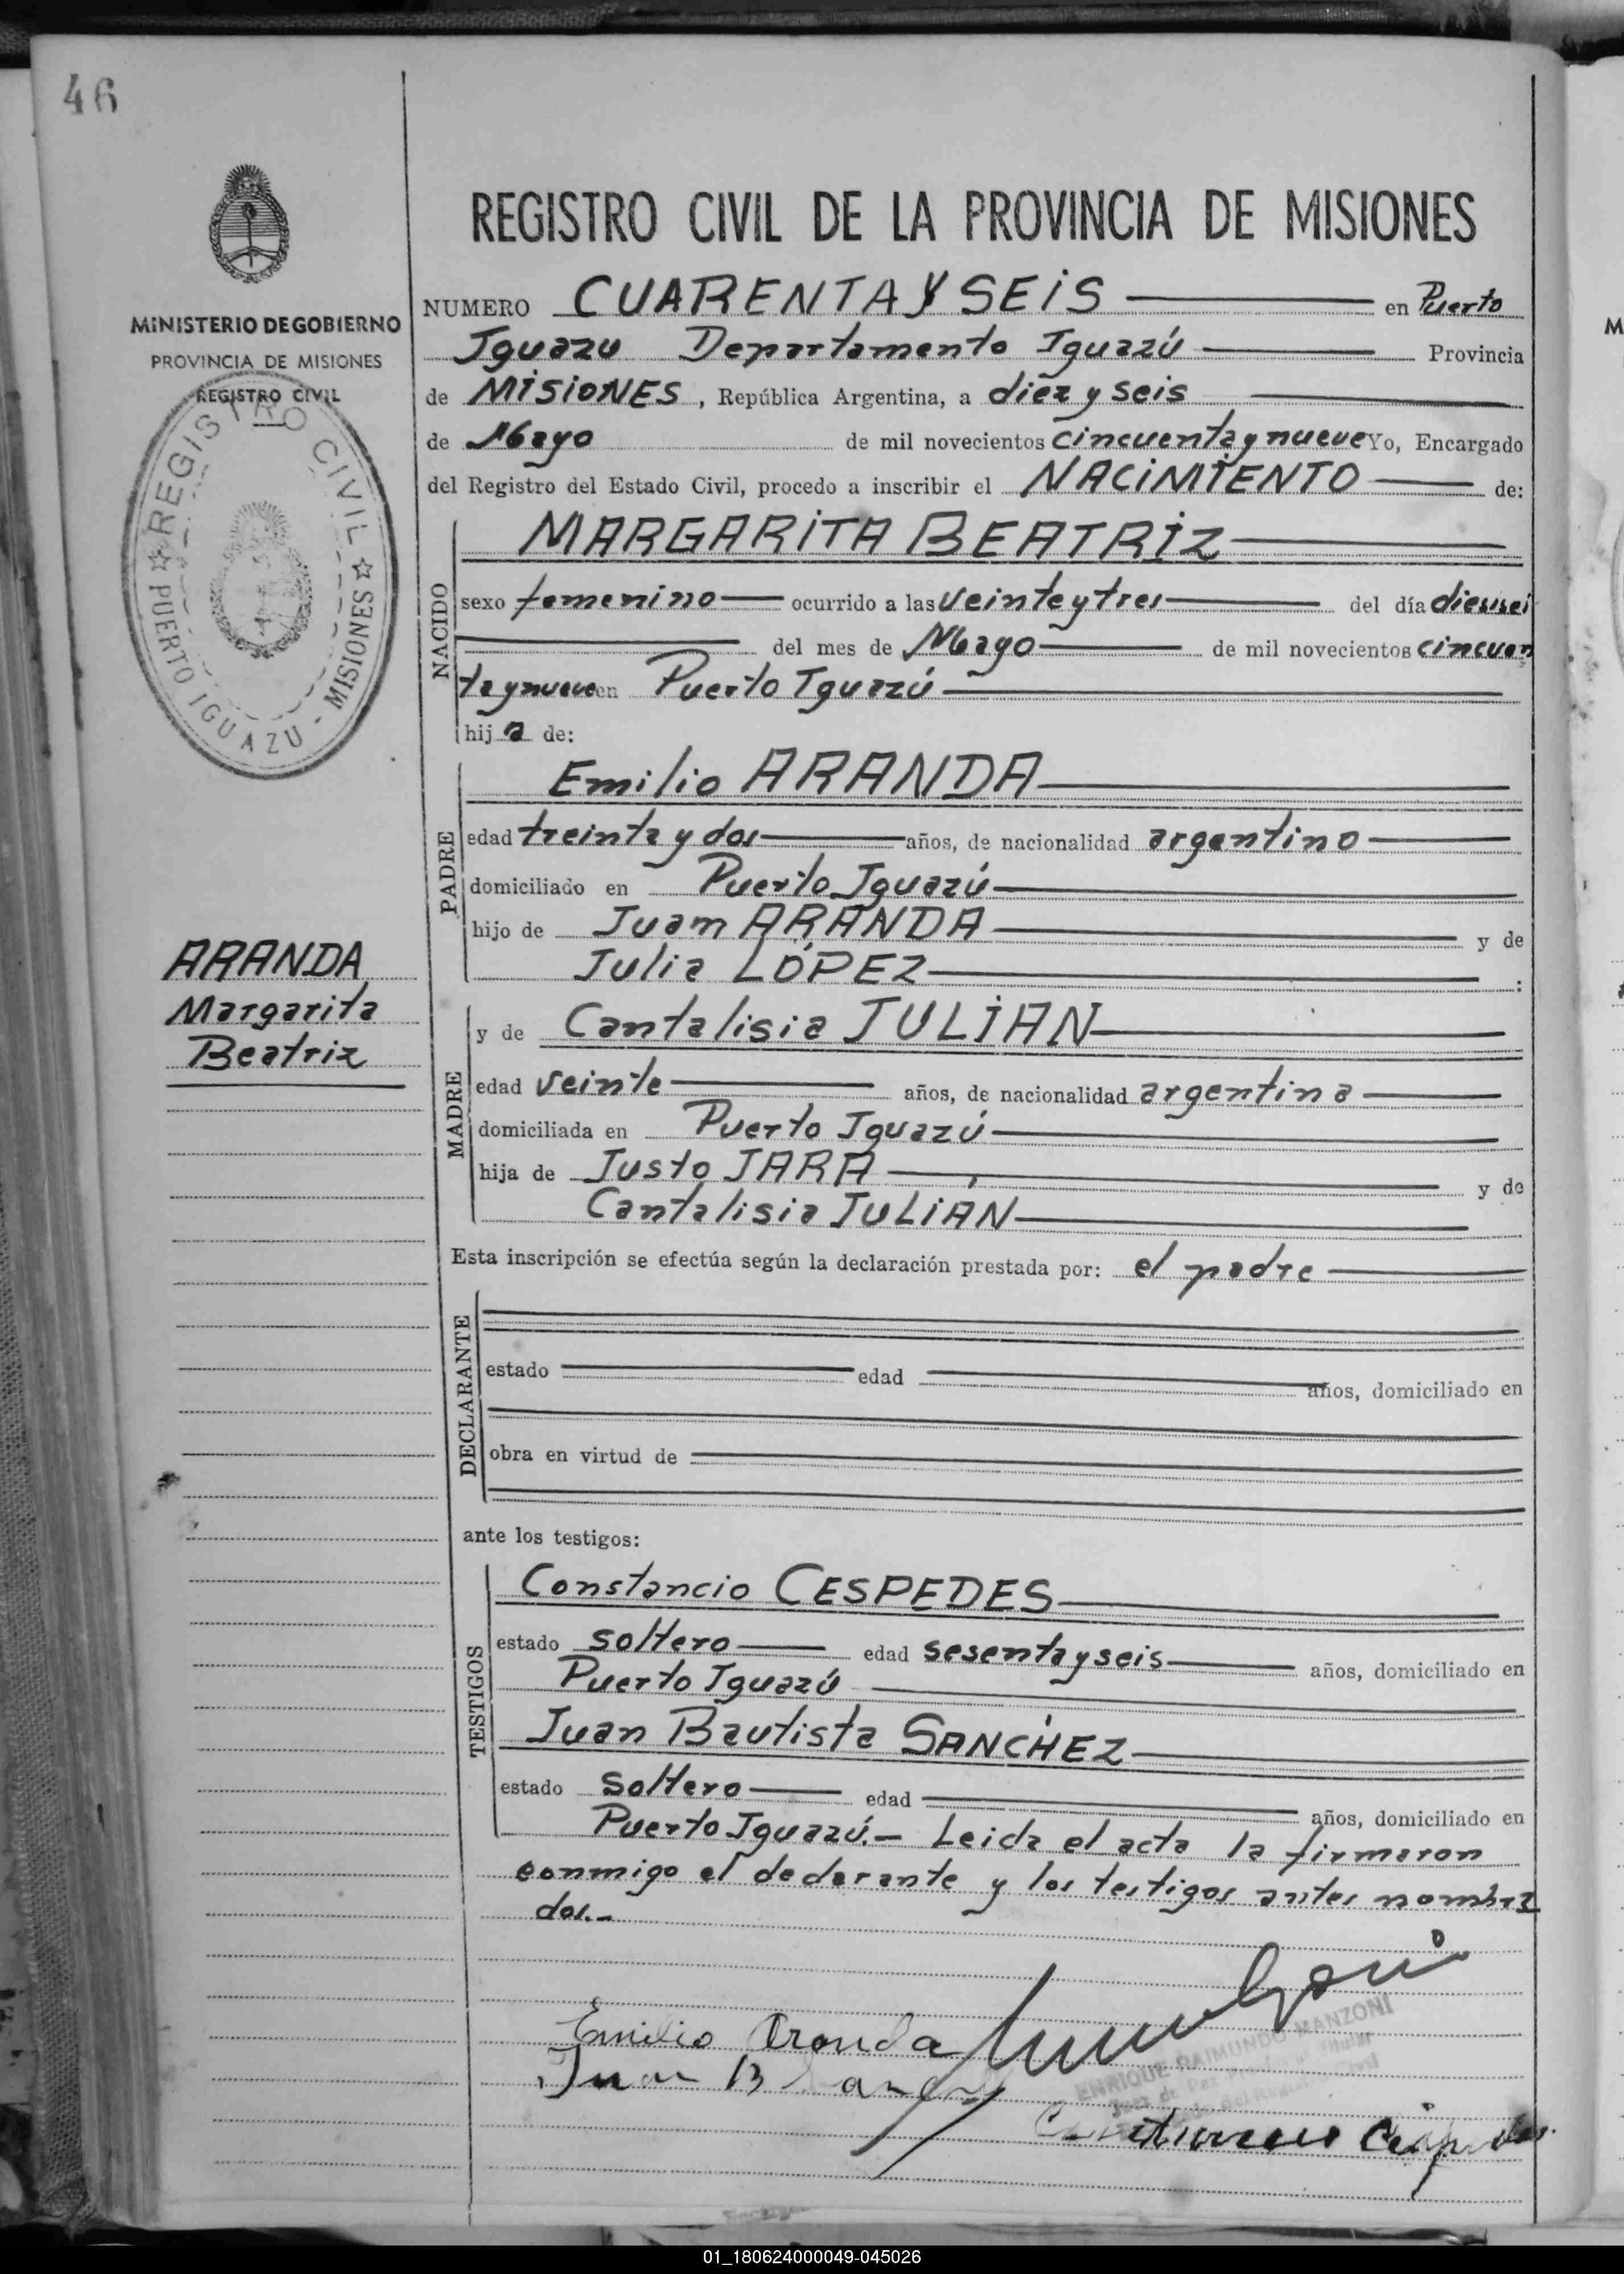 46
MINISTERIO DE GOBIERNO
PROVINCIA DE MISIONES
REGISTRO CIVIL
REGISTRO CIVIL
☆ PUERTO IGUAZU - MISIONES ☆
ARANDA
Margarita
Beatriz
REGISTRO CIVIL DE LA PROVINCIA DE MISIONES
NUMERO CUARENTA Y SEIS en Puerto
Iguazu Departamento Iguazú Provincia
de MISIONES, República Argentina, a diez y seis
de Mayo de mil novecientos cincuenta y nueve Yo, Encargado
del Registro del Estado Civil, procedo a inscribir el NACIMIENTO de:
NACIDO
MARGARITA BEATRIZ
sexo femenino ocurrido a las veinte y tres del día dieciséi
del mes de Mayo de mil novecientos cincuen
ta y nueve en Puerto Iguazú
hija de:
PADRE
Emilio ARANDA
edad treinta y dos años, de nacionalidad argentino
domiciliado en Puerto Iguazú
hijo de Juam ARANDA y de
Julia LÓPEZ :
MADRE
y de Cantalisia JULIAN
edad veinte años, de nacionalidad argentina
domiciliada en Puerto Iguazú
hija de Justo JARA y de
Cantalisia JULIÁN
Esta inscripción se efectúa según la declaración prestada por: el padre
DECLARANTE
estado edad años, domiciliado en
obra en virtud de
ante los testigos:
TESTIGOS
Constancio CESPEDES
estado soltero edad sesenta y seis años, domiciliado en
Puerto Iguazú
Juan Bautista SANCHEZ
estado soltero edad años, domiciliado en
Puerto Iguazú.- Leida el acta la firmaron
conmigo el declarante y los testigos antes nombra
dos.-
Emilio Aranda
Juan B
ENRIQUE RAIMUNDO MANZONI
Juez de Paz Titular
01_180624000049-045026